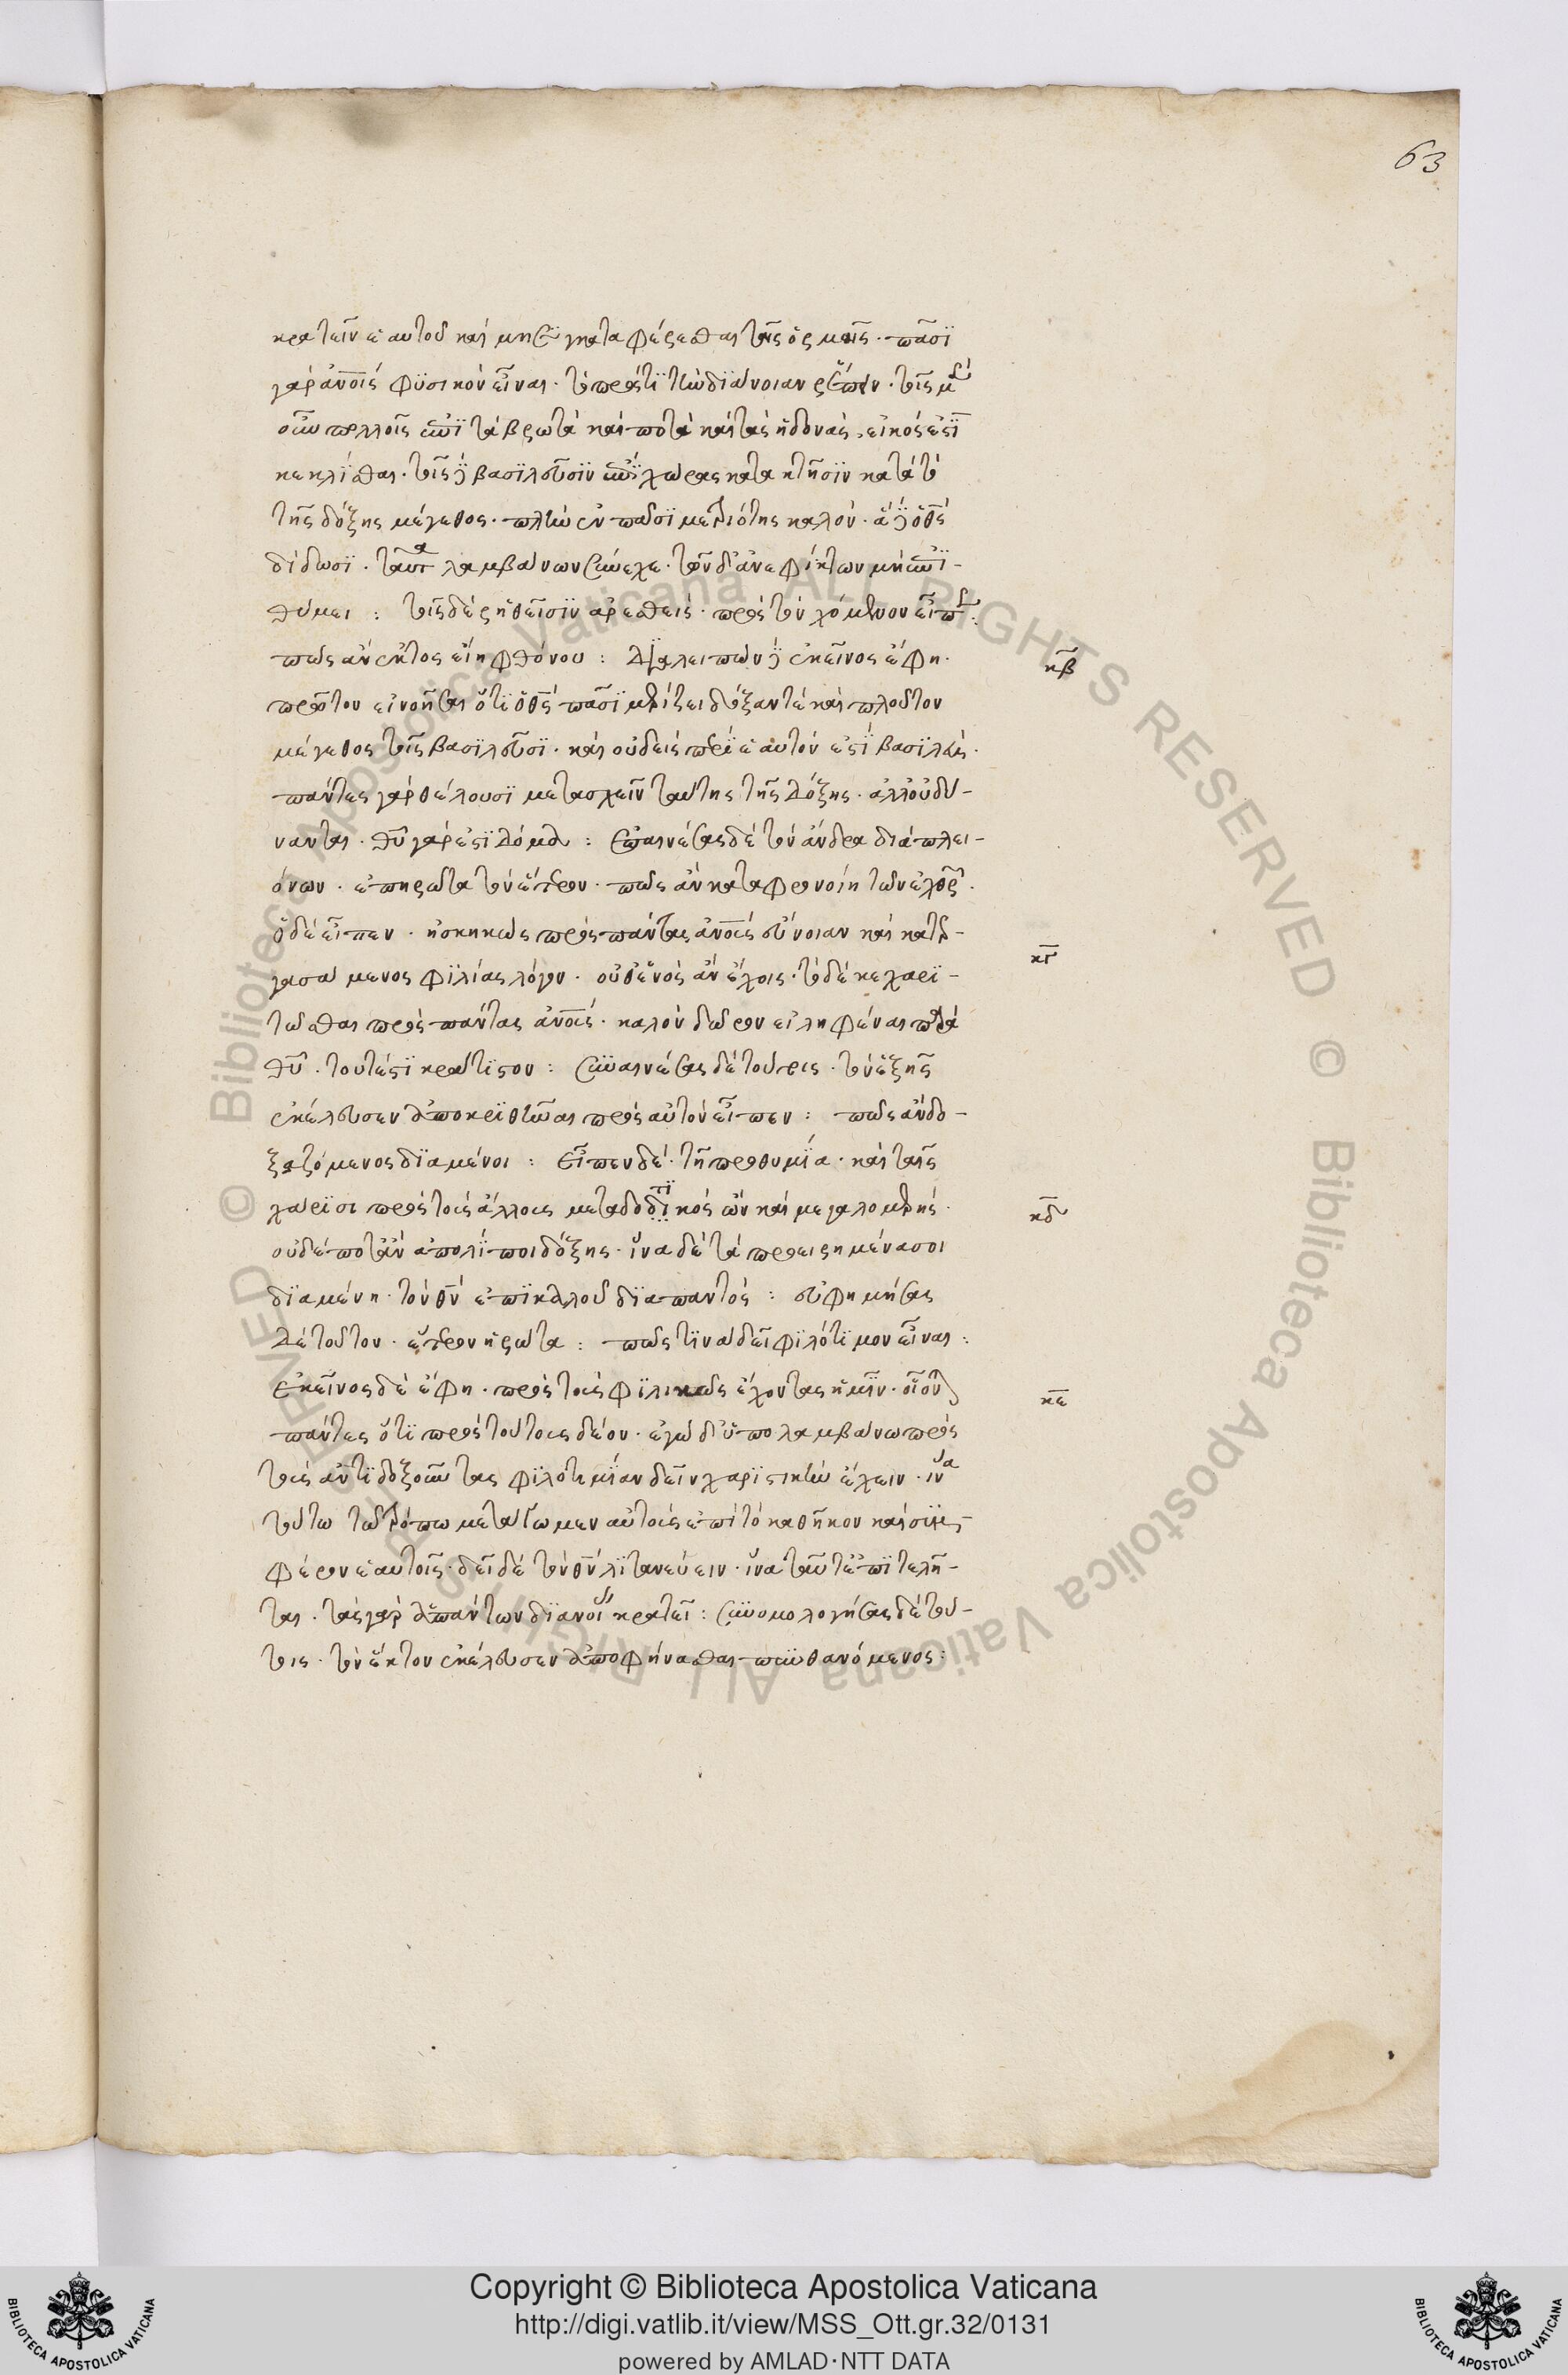 63
κρατεῖν ἑαυτοῦ καὶ μὴ συγκαταφέρεσθαι ταῖς ὁρμαῖς. πᾶσϊ
γὰρ ἀν̅ο̅ι̅ς φϋσικὸν εἶναι. τὸ πρός τϊ τὴν δϊάνοιαν ῥέπειν. τοῖς μὲν
οὖν πολλοῖς ἐπῒ τὰ βρωτὰ καὶ ποτὰ καὶ τὰς ἡδονὰς, εἰκός ἐστϊ
κεκλίσθαι. τοῖς δὲ βασϊλεῦσϊν ἐπῒ χώρας κατάκτησϊν κατὰ τὸ
τῆς δόξης μέγεθος. πλὴν ἐν πᾶσϊ μετριότης καλόν. ἃ δὲ ὁ θ̅ς̅
δίδωσϊ. ταῦτα λαμβάνων σύνεχε. τῶν δ' ἀνεφίκτων μὴ ἐπϊ-
θύμει : τοῖς δὲ ῥηθεῖσϊν ἀρεσθεὶς. πρὸς τὸν ἐχόμενον εἶπε:
πῶς ἂν ἐκτὸς εἴη φθόνου : Διαλειπὼν δὲ ἐκεῖνος ἔφη.
κ̅β̅
πρῶτον εἰ νοῆσαι ὅτϊ ὁ θ̅ς̅ πᾶσϊ μερίζει δόξαν τὲ καὶ πλούτου
μέγεθος τοῖς βασϊλεῦσϊ. καὶ οὐδεὶς περῒ ἑαυτόν ἐστϊ βασϊλεὺς.
πάντες γὰρ θέλουσϊ μετασχεῖν ταύτης τῆς δόξης. ἀλλ' οὐ δύ-
νανται. θ̅υ̅ γάρ ἐστϊ δόμα : Ἐπαινέσας δὲ τὸν ἄνδρα διὰ πλει-
όνων. ἐπηρώτα τὸν ἕτερον. πῶς ἂν καταφρονοίη τῶν ἐχθρῶν.
ὁ δὲ εἶπεν. ἠσκηκὼς πρὸς πάντας ἀν̅ο̅υ̅ς εὔνοιαν καὶ κατερ-
κ̅γ̅
γασάμενος φϊλίας λόγον. οὐθενὸς ἂν ἔχοις. τὸ δὲ κεχαρϊ-
τῶσθαι πρὸς πάντας ἀν̅ο̅υ̅ς. καλὸν δῶρον εἰληφέναι παρὰ
θ̅υ̅. τοῦτ' ἐστϊ κράτϊστον : Συναινέσας δὲ τούτοις. τὸν ἑξῆς
ἐκέλευσεν ἀποκρϊθῆναι πρὸς αὐτὸν εἶπεν : πῶς ἂν δο-
ξαζόμενος δϊαμένοι : Εἶπεν δὲ. τῇ προθυμίᾳ. καὶ ταῖς
χάρϊσι πρὸς τοὺς ἄλλους μεταδοτϊκὸς ὢν καὶ μεγαλομερὴς.
κ̅δ̅
οὐδέποτ' ἂν ἀπολίποι δόξης. ἵνα δὲ τὰ προειρημένα σοι
δϊαμένη. τὸν θ̅ν̅ ἐπϊκαλοῦ δϊαπαντὸς : εὐφημήσας
δὲ τοῦτον. ἕτερον ἠρώτα : πῶς τϊνα δεῖ φϊλότϊμον εἶναι :
Ἐκεῖνος δὲ ἔφη. πρὸς τοὺς φϊλικῶς ἔχοντας ἡμῖν. οἴονται
κ̅ε̅
πάντες ὅτϊ πρὸς τούτους δέον. ἐγὼ δ' ὑπολαμβάνω πρὸς
τοὺς ἀντϊδοξοῦντας φϊλοτιμίαν δεῖν χαρϊστικὴν ἔχειν. ἵνα
τούτω τῶ τρόπω μετάγωμεν αὐτοὺς ἐπὶ τὸ καθῆκον καὶ συμ-
φέρον ἑαυτοῖς. δεῖ δὲ τὸν θ̅ν̅ λϊτανεύειν. ἵνα ταῦτ' ἐπϊτελῆ-
ται. τὰς γὰρ ἁπάντων δϊανοίας κρατεῖ : Συνομολογήσας δὲ τού-
τοις. τὸν ἕκτον ἐκέλευσεν ἀποφήνασθαι πυνθανόμενος :
© Biblioteca Apostolica Vaticana ALL RIGHTS RESERVED © Biblioteca Apostolica Vaticana ALL RIGHTS RESERVED
BIBLIOTECA APOSTOLICA VATICANA
Copyright © Biblioteca Apostolica Vaticana
http://digi.vatlib.it/view/MSS_Ott.gr.32/0131
powered by AMLAD·NTT DATA
BIBLIOTECA APOSTOLICA VATICANA